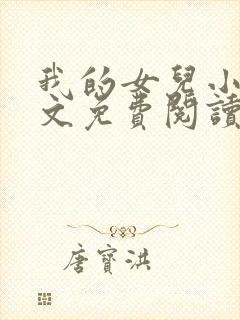 我的女兒小
文免費閱讀
唐寶洪